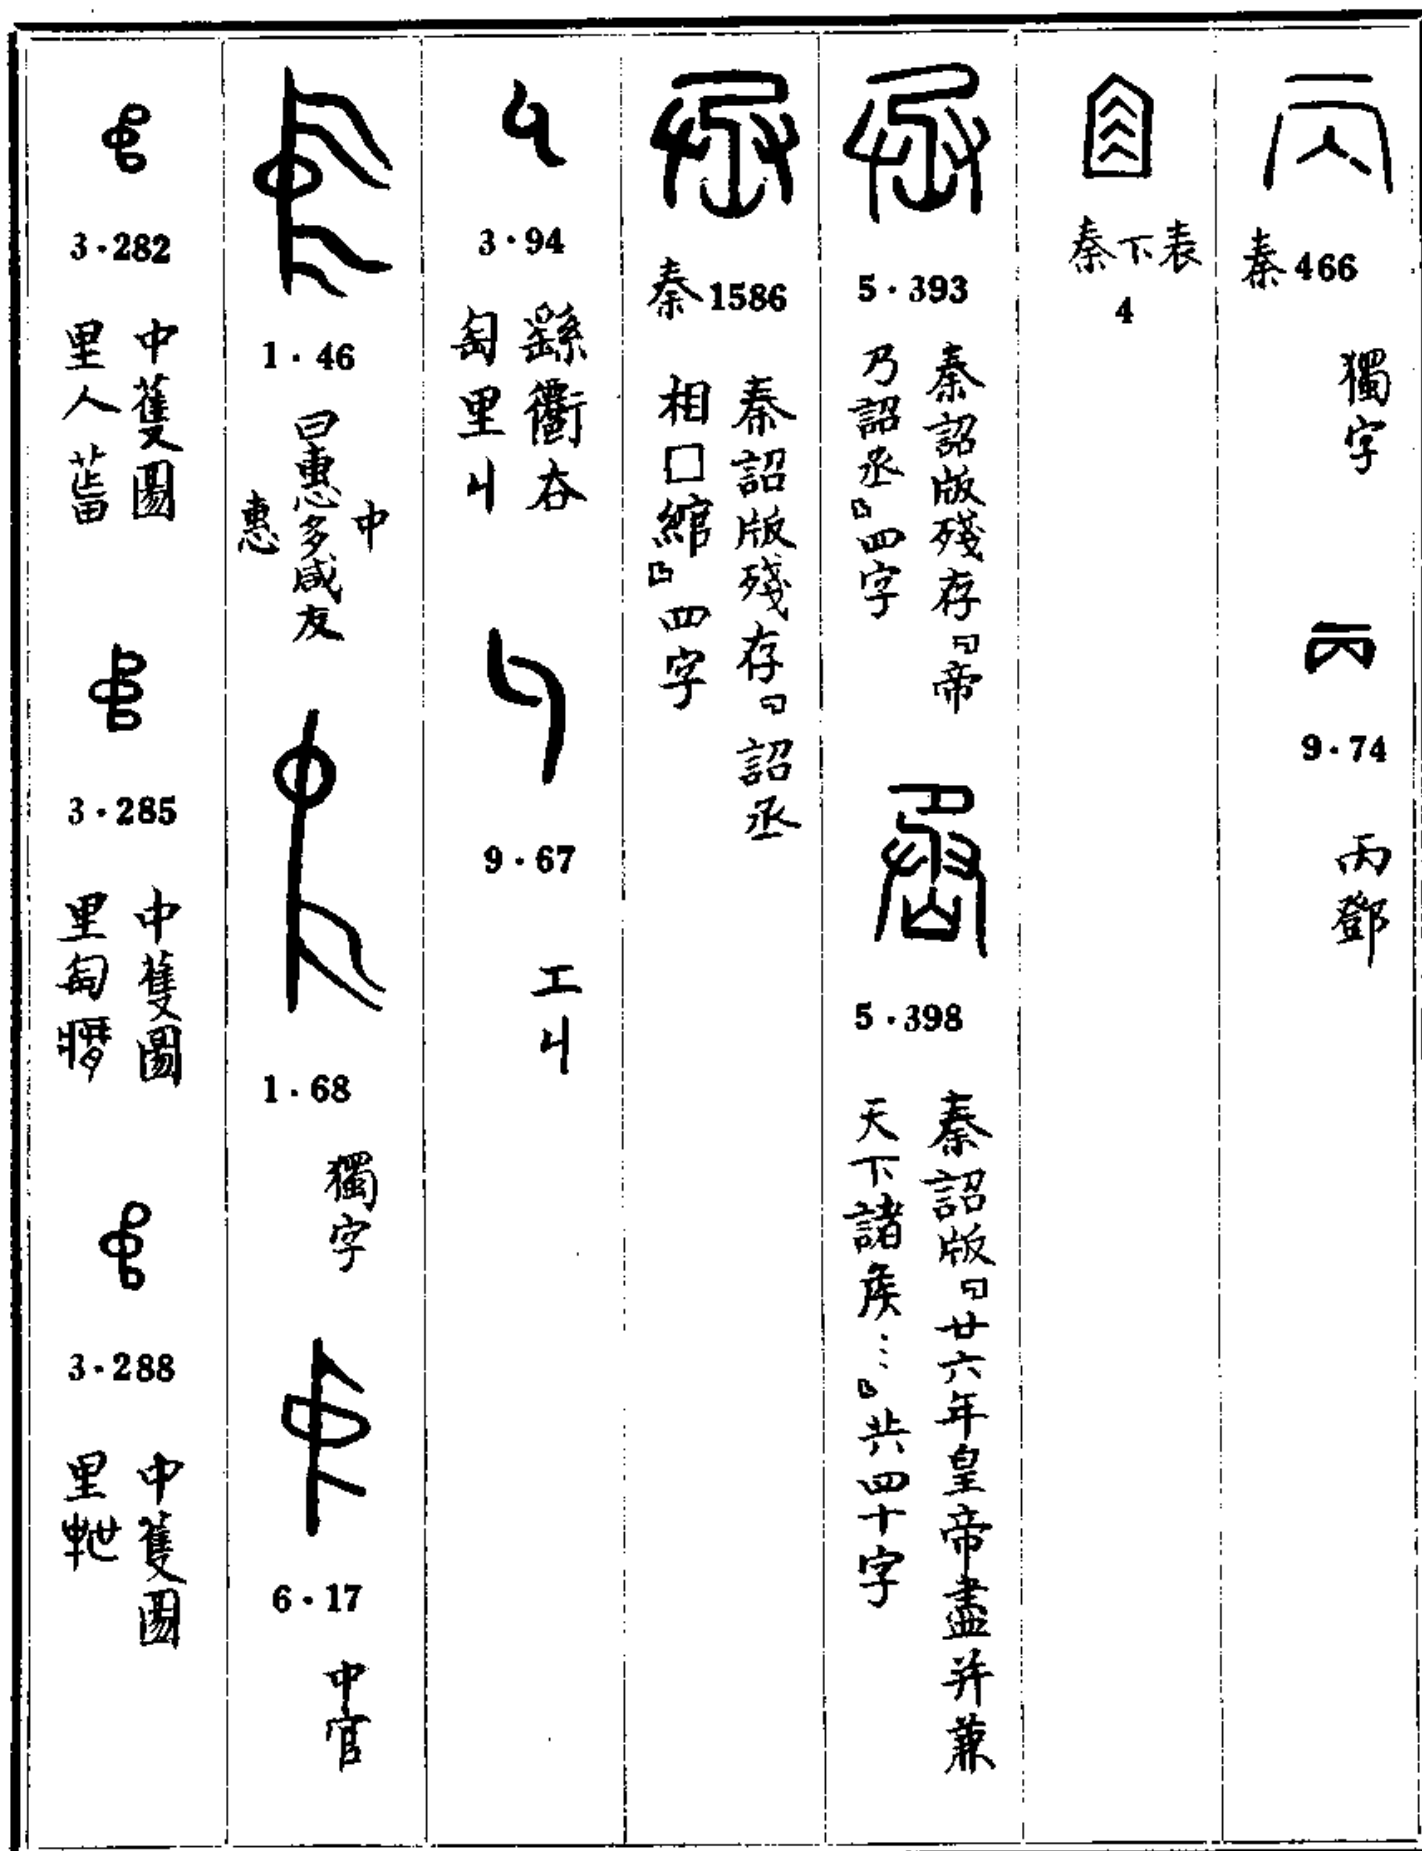 秦466
獨字
9·74
丙鄧
秦下表
4
5·393
秦詔版殘存「帝
乃詔丞」四字
5·398
秦詔版「廿六年皇帝盡并兼
天下諸矦…」共四十字
秦1586
秦詔版殘存「詔丞
相□綰」四字
3·94
繇衢杏
匋里丩
9·67
工丩
1·46
中
曰惠多咸友
惠
1·68
獨字
6·17
中官
3·282
中蒦圖
里人
3·285
中蒦圖
里匋
3·288
中蒦圖
里